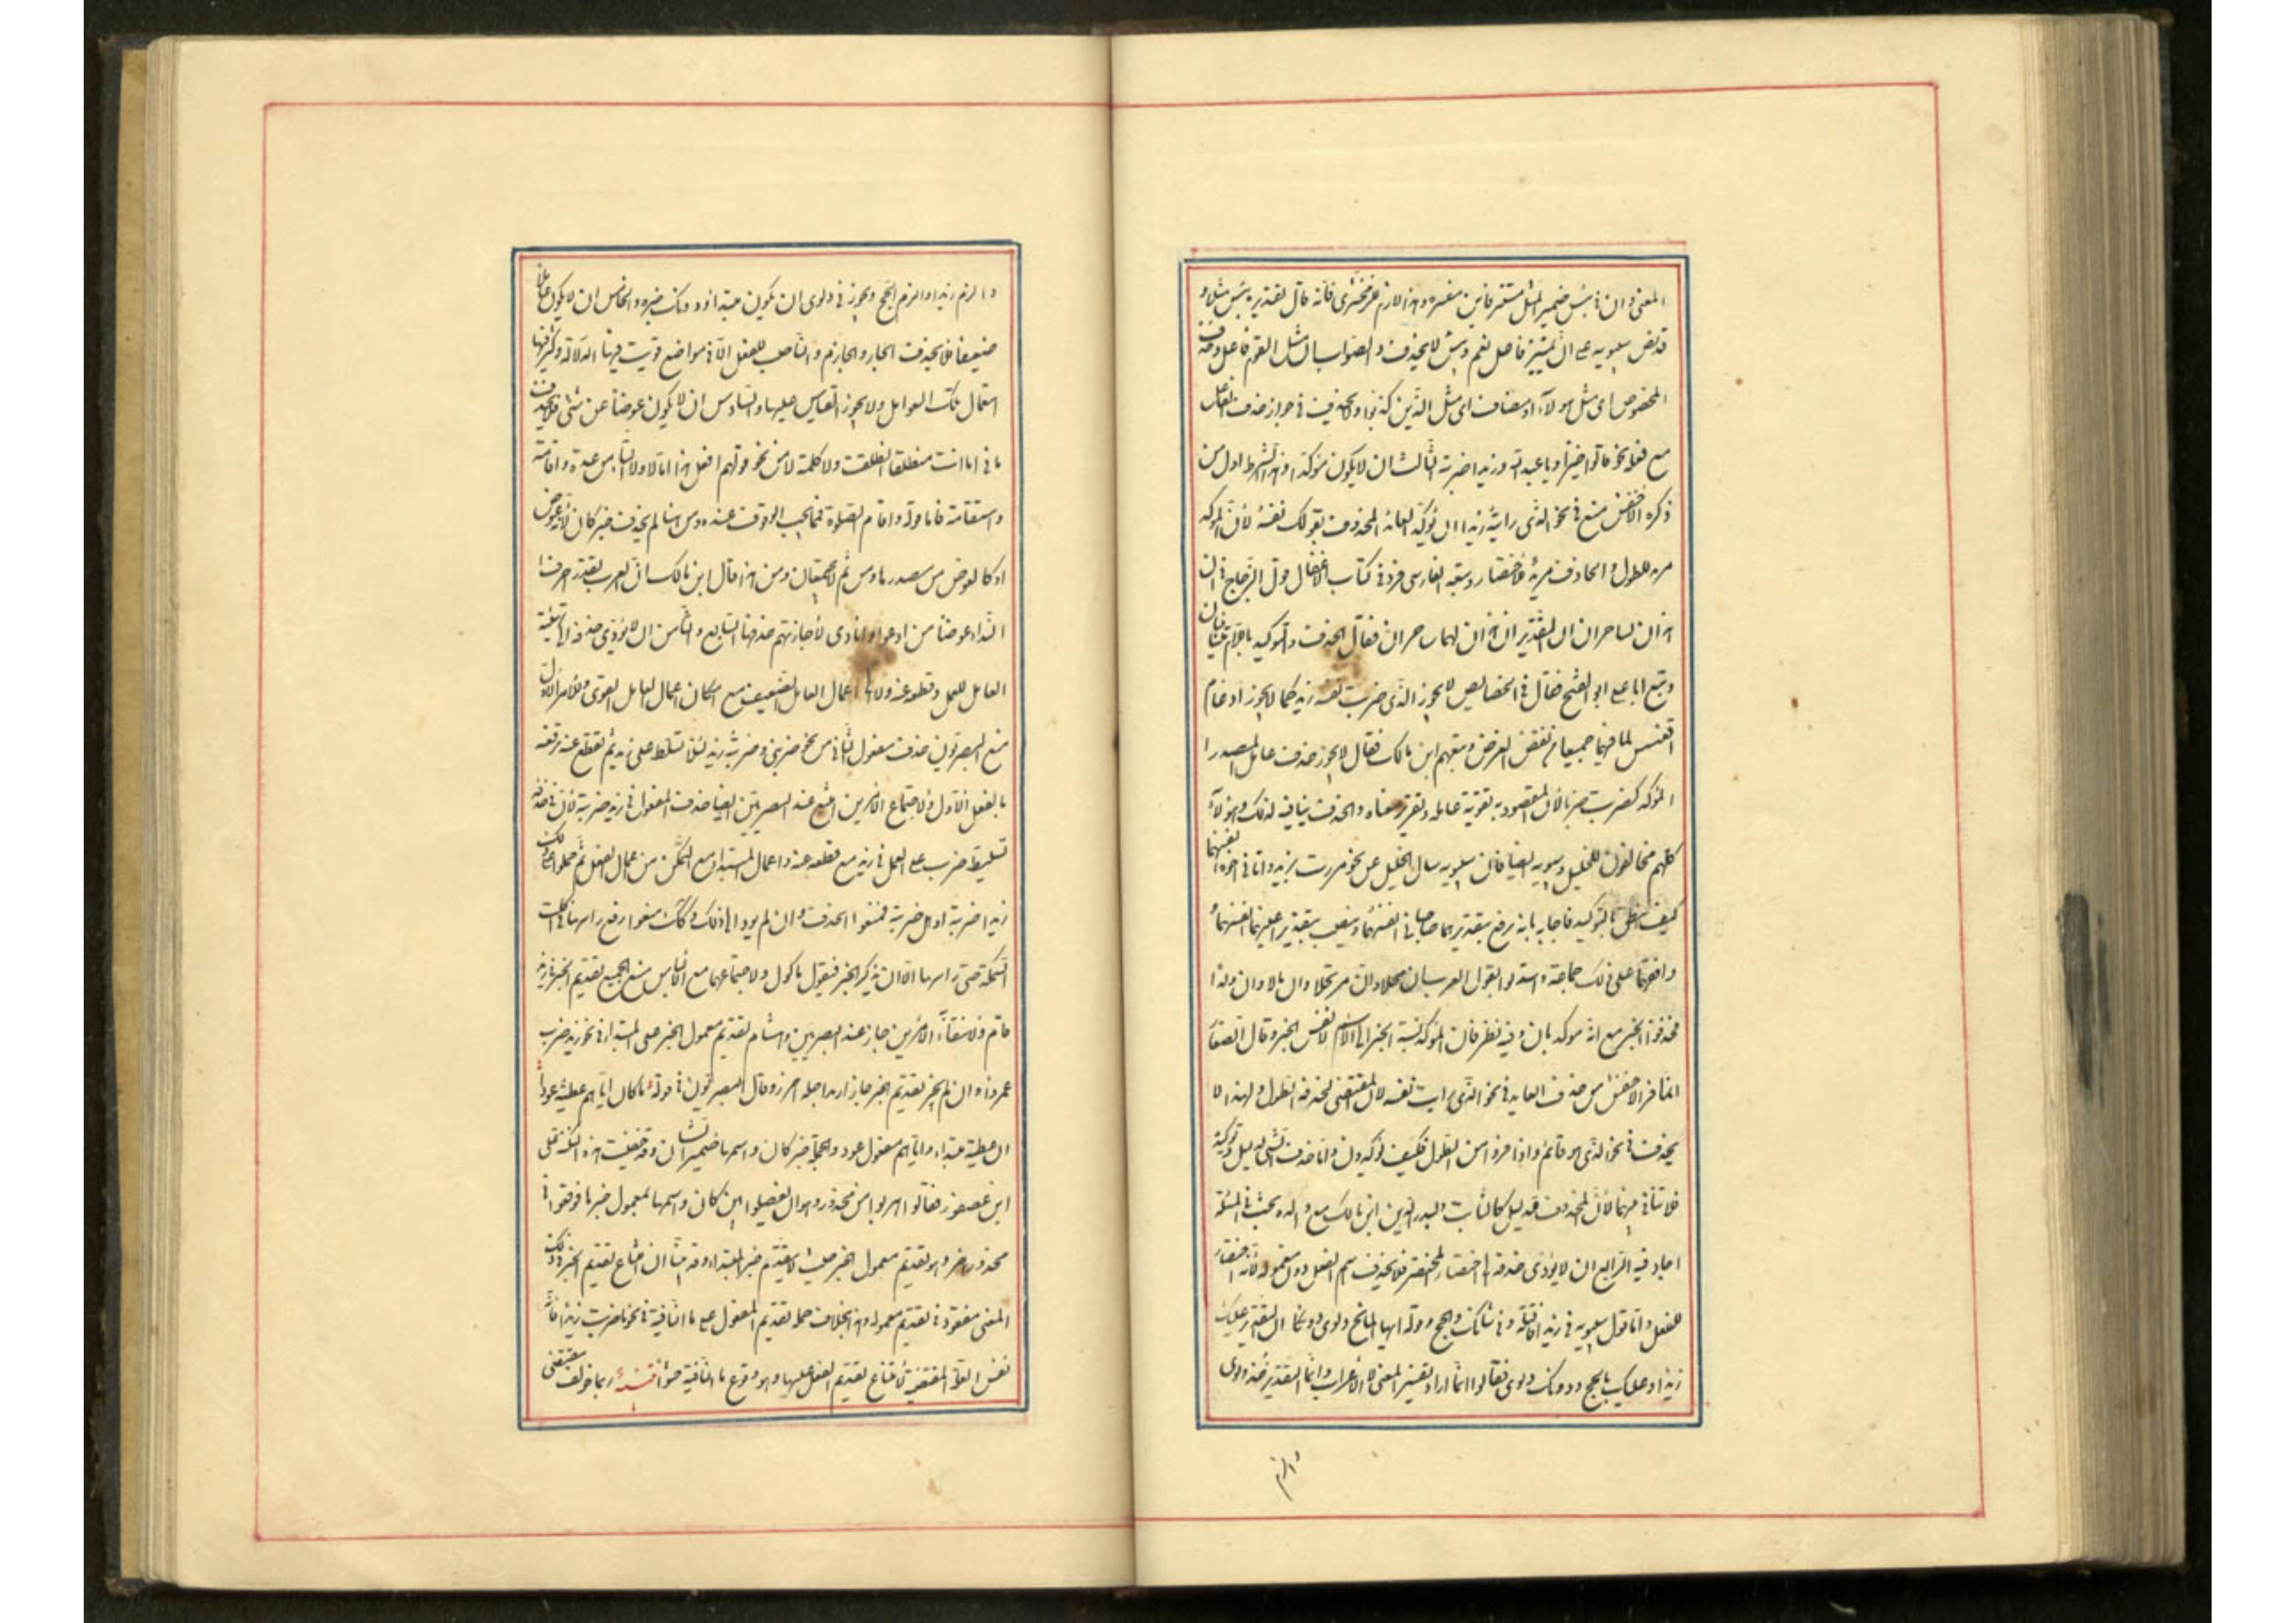 المعنى وان فى بئس ضمير المثل مستتر فاين مفسره وهذا لازم للزمخشرى فانه قال تقديره بئس مثلا و
قد نص سيبويه على ان تمييز فاعل نعم وبئس لا يحذف والصواب ان مثل القوم فاعل وحذف
المخصوص اى مثل هولاء او مضاف اى مثل الذين كذبوا ولا يحذف فى جواز حذف الفاعل
مع فعله نحو قالوا خيرا ويا عبد الله وزيدا ضربته الثالث ان لا يكون مؤكدا وهذا الشرط اول من
ذكره الاخفش منع فى نحو الذى رايته زيدا ان يؤكد العائد المحذوف بقولك نفسه لان المؤكد
مريد للطول والحاذف مريد للاختصار وتبعه الفارسى فرد فى كتاب الاغفال قول الزجاج فى ان
هذان لساحران ان التقدير ان هذان لهما ساحران فقال الحذف والتوكيد باللام متنافيان
وتبع ابا على ابو الفتح فقال فى الخصايص لا يجوز الذى ضربت نفسه زيد كما لا يجوز ادغام
اقعنسس لما فيهما جميعا من نقض الغرض وتبعهم ابن مالك فقال لا يجوز حذف عامل المصدر ا
المؤكد كضربت ضربا لان المقصود به تقوية عامله وتقرير معناه والحذف ينافيه لذلك وهولاء
كلهم مخالفون للخليل وسيبويه ايضا فان سيبويه سال الخليل عن نحو مررت بزيد واتانى اخوه انفسهما
كيف ينطق بالتوكيد فاجابه بانه يرفع بتقدير هما صاحباى انفسهما وينصب بتقدير اعنيهما انفسهما و
وافقهما على ذلك جماعة واستدلوا بقول العرب ان محلا وان مرتحلا وان مالا وان ولدا
فحذفوا الخبر مع انه موكد بان وفيه نظر فان المؤكد نسبة الخبر الى الاسم لا نفس الخبر وقال الصفار
انما فر الاخفش من حذف العايد فى نحو الذى رايت نفسه لان المقتضى لحذفه الطول ولهذا لا
يحذف فى نحو الذى هو قائم واذا فروا من الطول فكيف يؤكدون واما حذف الشئ لدليل وتوكيده
فلا تنافى بينهما لان المحذوف لدليل كالثابت ولبدر الدين ابن مالك مع والده بحث فى المسئلة
اجاد فيه الرابع ان لا يؤدى حذفه الى اختصار المختصر فلا يحذف اسم الفعل دون معموله لانه اختصار
للفعل واما قول سيبويه فى زيدا فاقتله وفى شانك والحج وقوله ايها المائح دلوى دونكا ان التقدير عليك
زيدا وعليك بالحج ودونك دلوى فقالوا انما اراد تفسير المعنى لا الاعراب وانما التقدير خذ دلوى
والزم
والزم زيدا والزم الحج ويجوز فى دلوى ان يكون مبتدا ودونك خبره والخامس ان لا يكون عاملا
ضعيفا فلا يحذف الجار والجازم والناصب للفعل الا فى مواضع قويت فيها الدلالة وكثر فيها
استعمال تلك العوامل ولا يجوز القياس عليها والسادس ان لا يكون عوضا عن شئ فلا يحذف
ما فى اما انت منطلقا انطلقت ولا كلمة لا من نحو قولهم افعل هذا اما لا ولا التاء من عدة واقامة
واستقامة فاما قوله واقام الصلوة فمما يجب الوقوف عنده ومن هنا لم يحذف خبر كان لانه عوض
او كالعوض من مصدرها ومن ثم لا يجتمعان ومن هنا قال ابن مالك ان العرب لم تقدر احرف
النداء عوضا من ادعو او انادى لاجازتهم حذفها السابع والثامن ان لا يؤدى حذفه الى تهيئة
العامل للعمل وقطعه عنه ولا الى اعمال العامل الضعيف مع امكان اعمال العامل القوى وللامر الاول
منع البصريون حذف مفعول الثانى من نحو ضربنى وضربته زيد لئلا يتسلط على زيد ثم يقطع عنه برفعه
بالفعل الاول ولاجتماع الامرين امتنع عند البصريين ايضا حذف المفعول فى زيد ضربته لان فى حذفه
تسليط ضرب على العمل فى زيد مع قطعه عنه واعمال المبتدا مع التمكن من اعمال الفعل ثم حملوا على ذلك
زيدا ضربته او هل ضربته فمنعوا الحذف وان لم يود الى ذلك وكذلك منعوا رفع راسها فى اكلت
السمكة حتى راسها الا ان يذكر الخبر فيقول ماكول ولاجتماعهما مع الالباس منع الجميع تقديم الخبر فى زيد
قام ولانتفاء الامرين جاز عند البصريين وهشام تقديم معمول الخبر على المبتداء فى نحو زيد ضرب
عمروا وان لم يجز تقديم الخبر فاجازوا زيدا اجله احرز وقال البصريون فى قوله بما كان اياهم عطية عودا
ان عطية مبتداء واياهم مفعول عود والجملة خبر كان واسمها ضمير الشان وقد خفيت هذه النكتة على
ابن عصفور فقالوا هربوا من محذور وهو ان يفصلوا بين كان واسمها بمعمول خبرها فوقعوا فى
محذور اخر وهو تقديم معمول الخبر حيث لا يتقدم خبر المبتداء وقد بينا ان امتناع تقديم الخبر فى ذلك
المعنى مفقود فى تقديم معموله وهذا بخلاف علة تقديم المفعول على ما النافية فى نحو ما ضربت زيدا فانه
نفس العلة المقتضية لامتناع تقديم الفعل عليها وهو وقوع ما النافية حشوا تنبيه ربما خولف مقتضى